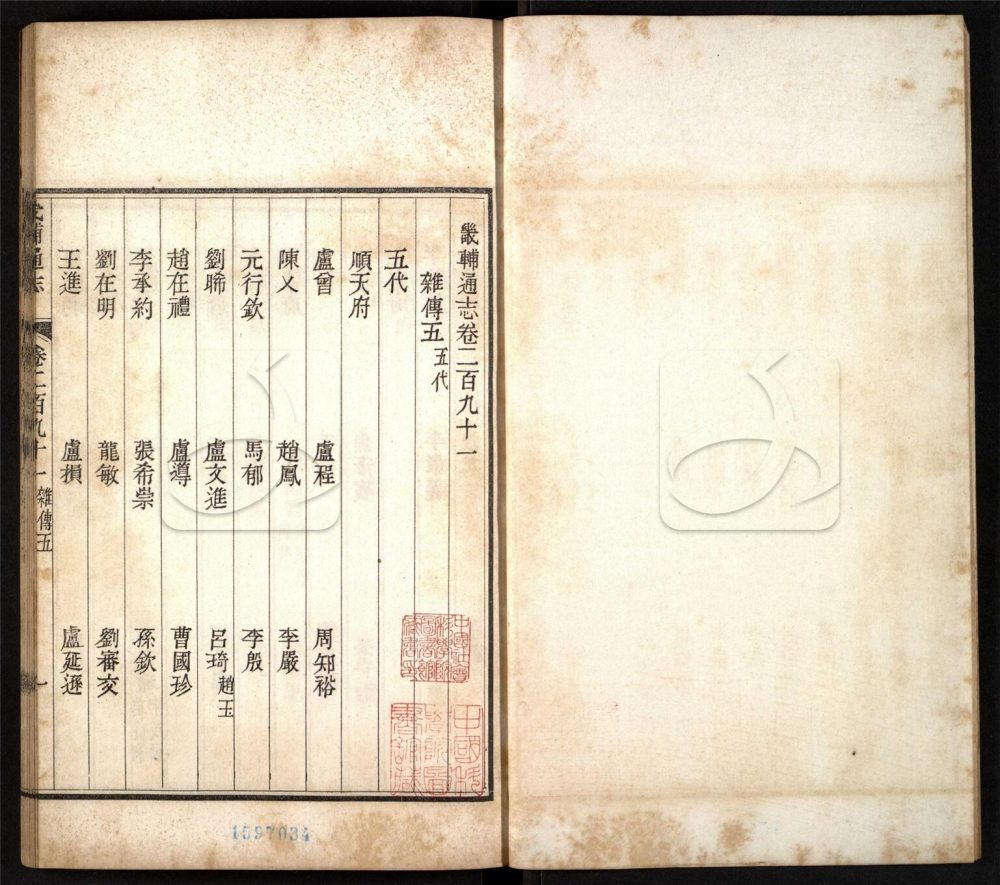 畿輔通志卷二百九十一
雜傳五 五代
五代
順天府
盧曾 盧程 周知裕
陳乂 趙鳳 李嚴
元行欽 馬郁 李殷
劉晞 盧文進 呂琦 趙玉
趙在禮 盧導 曹國珍
李承約 張希崇 孫欽
劉在明 龍敏 劉審交
王進 盧損 盧延遜
輔通志 卷二百九十一 雜傳五 一
1597034